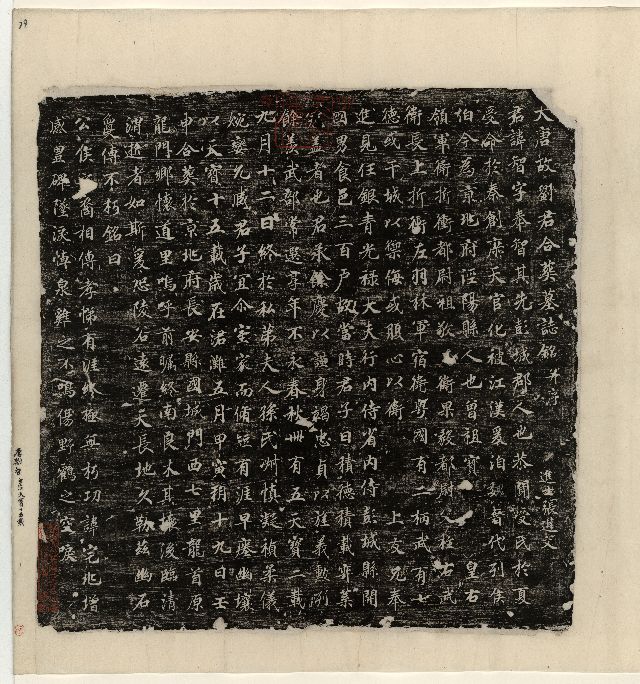 大唐故劉君合葬墓誌銘并序 進士張遘文
君諱智字奉智其先彭城郡人也恭聞受氏於夏
受命於秦創業天官化被江漢爰洎魏晉代列侯
伯今為京兆府涇陽縣人也曾祖寶 皇右
領軍衛折衝都尉祖敬 衛果毅都尉父柱右武
衛長上折衝左羽林軍宿衛粵國有二柄武有七
德或干城以禦侮或腹心以衛 上交兄奉
進見任銀青光祿大夫行內侍省內侍彭城縣開
國男食邑三百戶故當時君子曰積德積載弈葉
益者也君承餘慶以謹身竭忠貞以
餘美武部常選享年不永春秋卌有五天寶二載
九月十二日終於私第夫人孫氏淑慎凝禎柔儀
婉孌九戚君子宜令室家而脩短有涯早瘞幽壤
以天寶十五載歲在涒灘五月甲寅朔十九日壬
申合葬於京兆府長安縣國城門西七里龍首原
龍門鄉懷道里嗚呼前矚終南良木其壞後臨清
渭逝者如斯爰恐陵谷遠遷天長地久勒茲幽石
爰傅不朽銘曰
公侯 裔相傅孝悌有涯終極無朽功諱宅兆增
感豐碑墮淚悼泉臺之不鳴傷野鶴之空唳
39